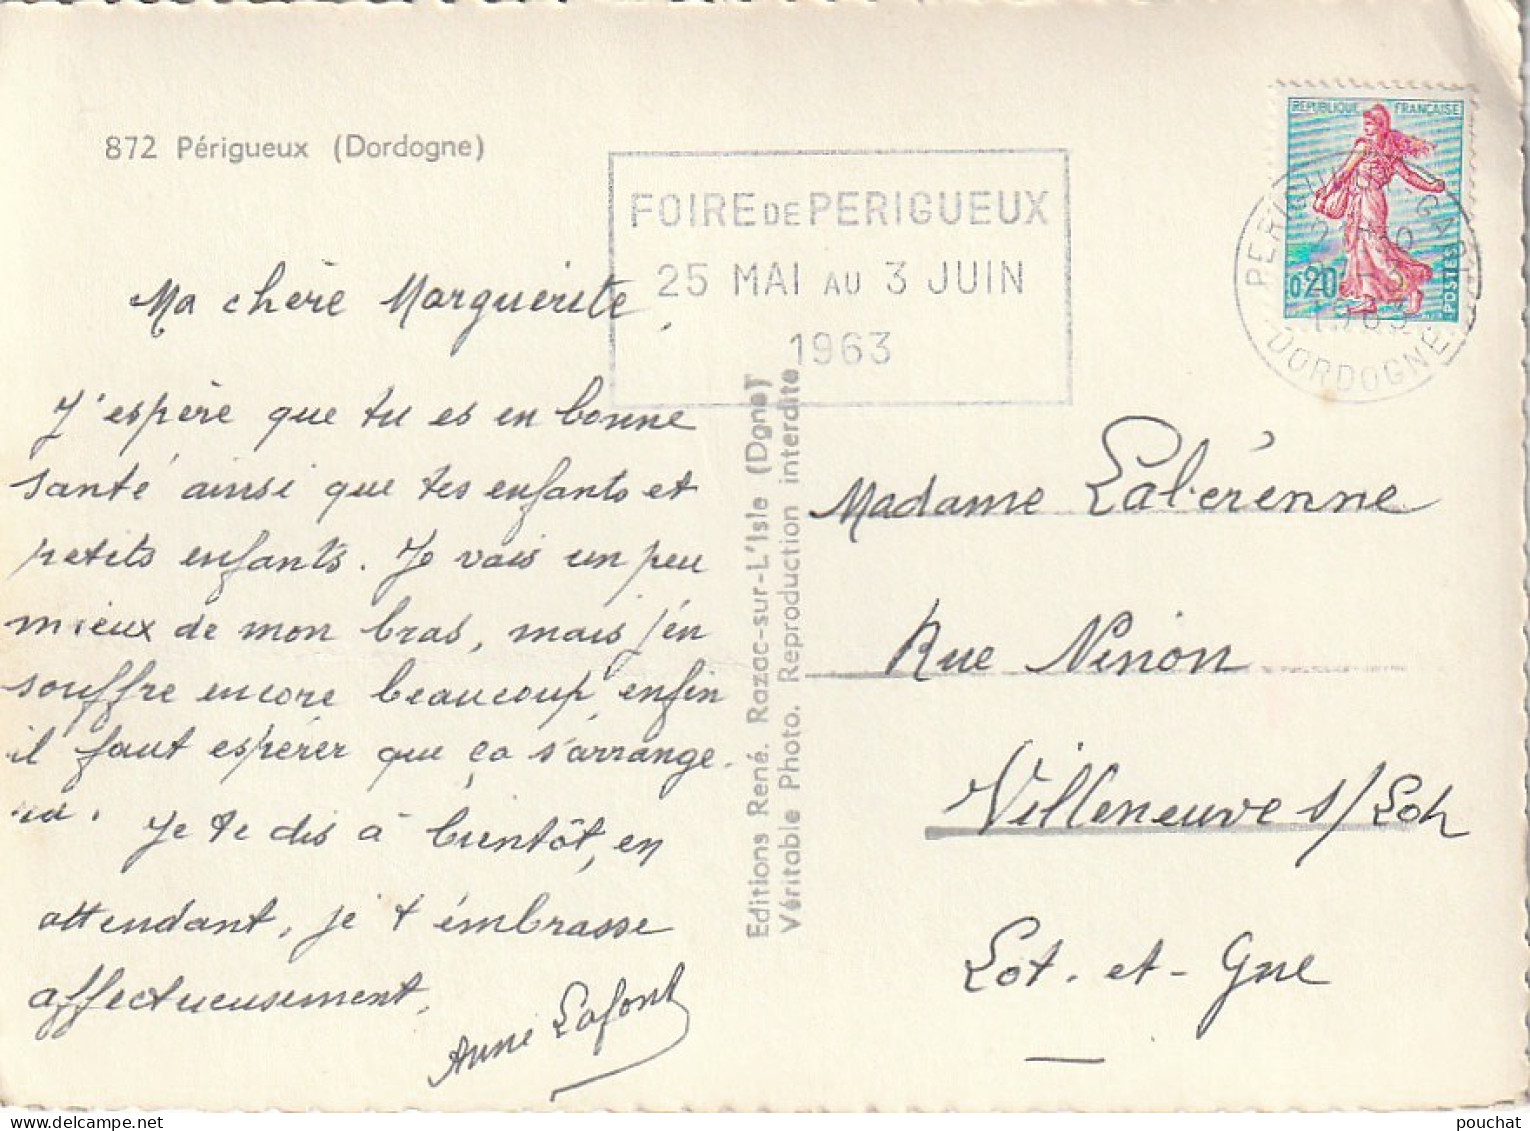 872 Périgueux (Dordogne)
FOIRE DE PERIGUEUX
25 MAI AU 3 JUIN
1963
REPUBLIQUE FRANÇAISE
0,20
POSTES
DORDOGNE
Ma chère Marguerite,
J'espère que tu es en bonne
santé ainsi que tes enfants et
petits enfants. Je vais un peu
mieux de mon bras, mais j'en
souffre encore beaucoup, enfin
il faut espérer que ça s'arrange-
ra. Je te dis à bientôt, en
attendant, je t'embrasse
affectueusement,
Anne Lafont
Editions René. Razac-sur-L'Isle (Dgne)
Véritable Photo. Reproduction interdite
Madame Labérenne
Rue Ninon
Villeneuve s/Lot
Lot-et-Gne
pouchat